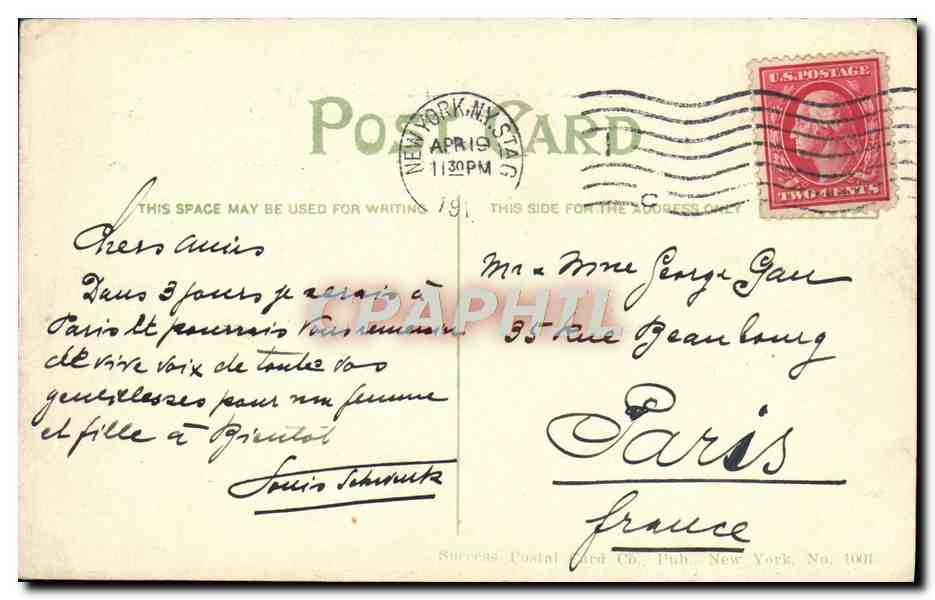 POST CARD
NEW YORK, N.Y. STA. G
APR 19
11 30 PM
191
U.S. POSTAGE
TWO CENTS
C
THIS SPACE MAY BE USED FOR WRITING
THIS SIDE FOR THE ADDRESS ONLY
Chers Amis
Dans 3 jours je serais à
Paris et pourrais vous remercier
de vive voix de toutes vos
gentillesses pour ma femme
et fille à Bientôt
Louis
Mr & Mme George Gau
35 Rue Beaubourg
Paris
france
CPAPHIL
Success Postal Card Co., Pub. New York, No. 1001